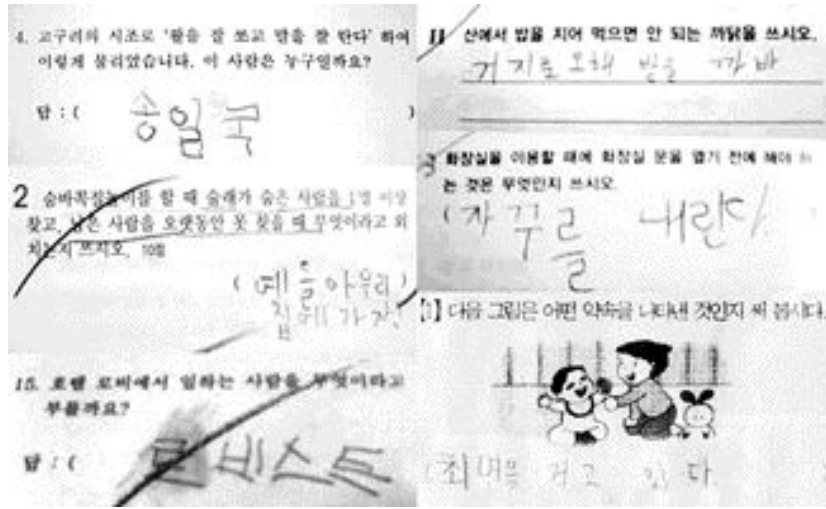 4. 고구려의 시조로 '활을 잘 쏘고 말을 잘 탄다' 하여
이렇게 불리었습니다. 이 사람은 누구일까요?
답 : ( 송일국 )
2 숨바꼭질놀이를 할 때 술래가 숨은 사람을 1명 이상
찾고, 남은 사람을 오랫동안 못 찾을 때 무엇이라고 외
치는지 쓰시오. 10점
( 얘들아 우리
집에 가자! )
15. 호텔 로비에서 일하는 사람을 무엇이라고
부를까요?
답 : ( 로비스트
11 산에서 밥을 지어 먹으면 안 되는 까닭을 쓰시오.
거지로 오해 받을 까바
3 화장실을 이용할 때에 화장실 문을 열기 전에 해야 하
는 것은 무엇인지 쓰시오.
( 자꾸를 내린다
【1】 다음 그림은 어떤 약속을 나타낸 것인지 써 봅시다.
( 최면을 걸고 있다. )